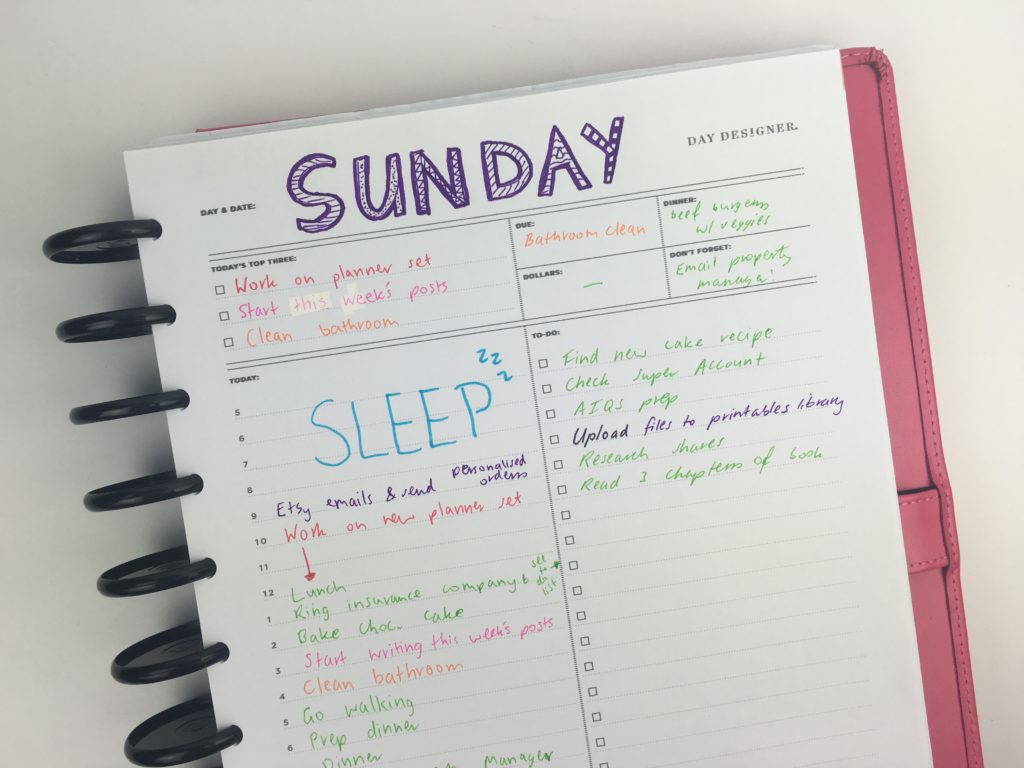 SUNDAY
DAY DESIGNER.
DAY & DATE:
TODAY'S TOP THREE:
Work on planner set
Start this week's posts
Clean bathroom
DUE:
Bathroom clean
DINNER:
beef burgers
w/ veggies
DOLLARS:
—
DON'T FORGET:
Email property
manager!
TODAY:
zzz
SLEEP
5
6
7
8
9 Etsy emails & send personalised
orders
10 Work on new planner set
11
12 Lunch
1 Ring insurance company & see
to
do
list
2 Bake choc. cake
3 Start writing this week's posts
4 Clean bathroom
5 Go walking
6 Prep dinner
Dinner
Manager
TO-DO:
Find new cake recipe
Check super Account
AIQS prep
Upload files to printables library
Research shares
Read 3 chapters of book